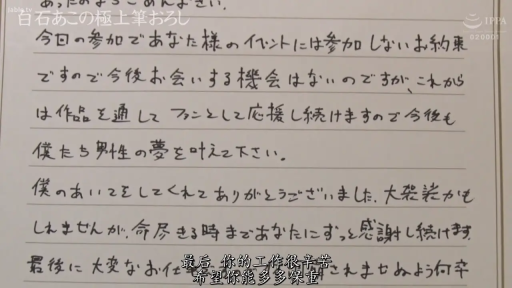 白石あこの極上筆おろし
IPPA
今回の参加であなた様のイベントには参加しないお約束
ですので今後お会いする機会はないのですが、これから
は作品を通して ファンとして応援し続けますので今後も
僕たち男性の夢を叶えて下さい。
僕のあいてをしてくれてありがとうございました。大袈裟かも
しれませんが、命尽きる時まであなたにずっと感謝し続けます。
最後に大変なお仕事
されませぬよう何卒
最后 你的工作很辛苦
希望你能多多保重